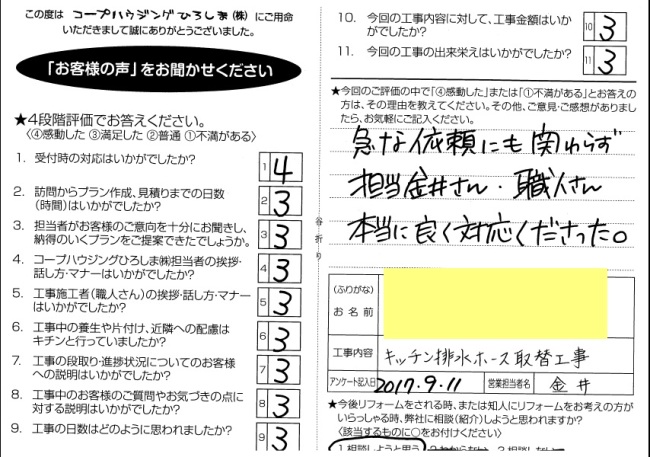 この度は コープハウジングひろしま(株) にご用命
いただきまして誠にありがとうございました。
「お客様の声」をお聞かせください
★4段階評価でお答えください。
〈④感動した ③満足した ②普通 ①不満がある〉
1. 受付時の対応はいかがでしたか?
1 4
2. 訪問からプラン作成、見積りまでの日数
(時間)はいかがでしたか?
2 3
3. 担当者がお客様のご意向を十分にお聞きし、
納得のいくプランをご提案できたでしょうか。
3 3
4. コープハウジングひろしま㈱担当者の挨拶・
話し方・マナーはいかがでしたか?
4 3
5. 工事施工者(職人さん)の挨拶・話し方・マナー
はいかがでしたか?
5 3
6. 工事中の養生や片付け、近隣への配慮は
キチンと行っていましたか?
6 3
7. 工事の段取り・進捗状況についてのお客様
への説明はいかがでしたか?
7 3
8. 工事中のお客様のご質問やお気づきの点に
対する説明はいかがでしたか?
8 3
9. 工事の日数はどのように思われましたか?
9 3
谷折り
10. 今回の工事内容に対して、工事金額はいか
がでしたか?
10 3
11. 今回の工事の出来栄えはいかがでしたか?
11 3
★今回のご評価の中で「④感動した」または「①不満がある」とお答えの
方は、その理由を教えてください。その他、ご意見・ご感想がありました
ら、お気軽にご記入ください。
急な依頼にも関わらず
担当金井さん・職人さん
本当に良く対応くださった。
(ふりがな)
お名前
工事内容 キッチン排水ホース取替工事
アンケート記入日 2017.9.11 営業担当者名 金井
★今後リフォームをされる時、または知人にリフォームをお考えの方が
いらっしゃる時、弊社に相談(紹介)しようと思われますか?
〈該当するものに○をお付けください〉
1.相談しようと思う